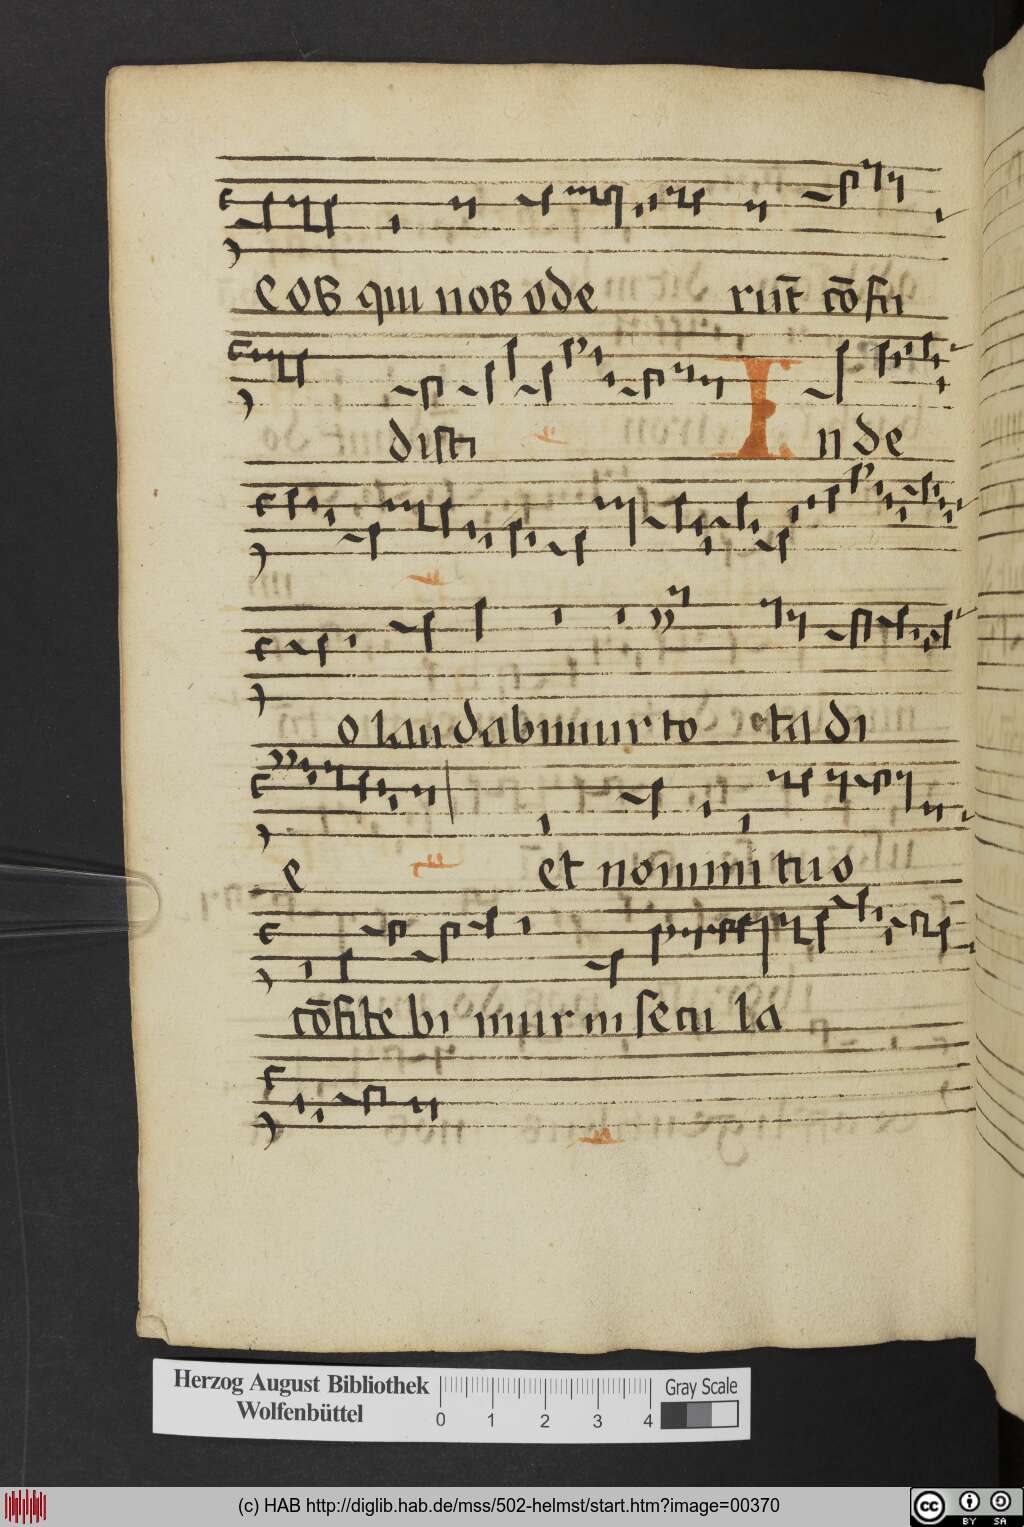 eos qui nos ode rūt cōfu
disti In de
o lau dabimur to ta di
e et nomini tuo
cōfitebi mur in secu la
Herzog August Bibliothek
Wolfenbüttel
0 1 2 3 4
Gray Scale
(c) HAB http://diglib.hab.de/mss/502-helmst/start.htm?image=00370
cc BY SA